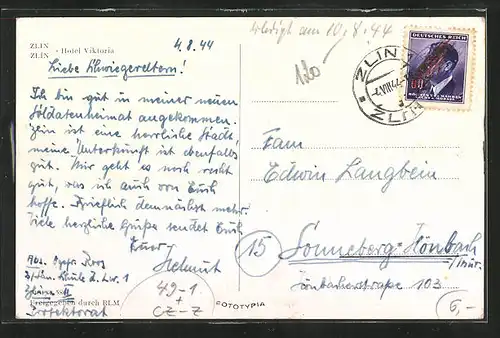 ZLIN
ZLÍN - Hotel Viktoria
4.8.44
Liebe Schwiegereltern!
Ich bin gut in meiner neuen
Soldatenheimat angekommen.
Zlin ist eine herrliche Stadt
meine Unterkunft ist ebenfalls
gut. Mir geht es noch recht
gut, was ich auch von Euch
hoffe. Brieflich demnächst mehr.
Viele herzliche Grüße sendet Euch
Euer
Helmut
Freigegeben durch RLM
Protektorat
49-1
+
CZ-Z
FOTOTYPIA
Erledigt am 10.8.44
120
DEUTSCHES REICH
60
ZLIN
ZLÍN
Fam
Edwin Langbein
15 Sonneberg-Hönbach
Thür.
Hönbacherstraße 103
6,-